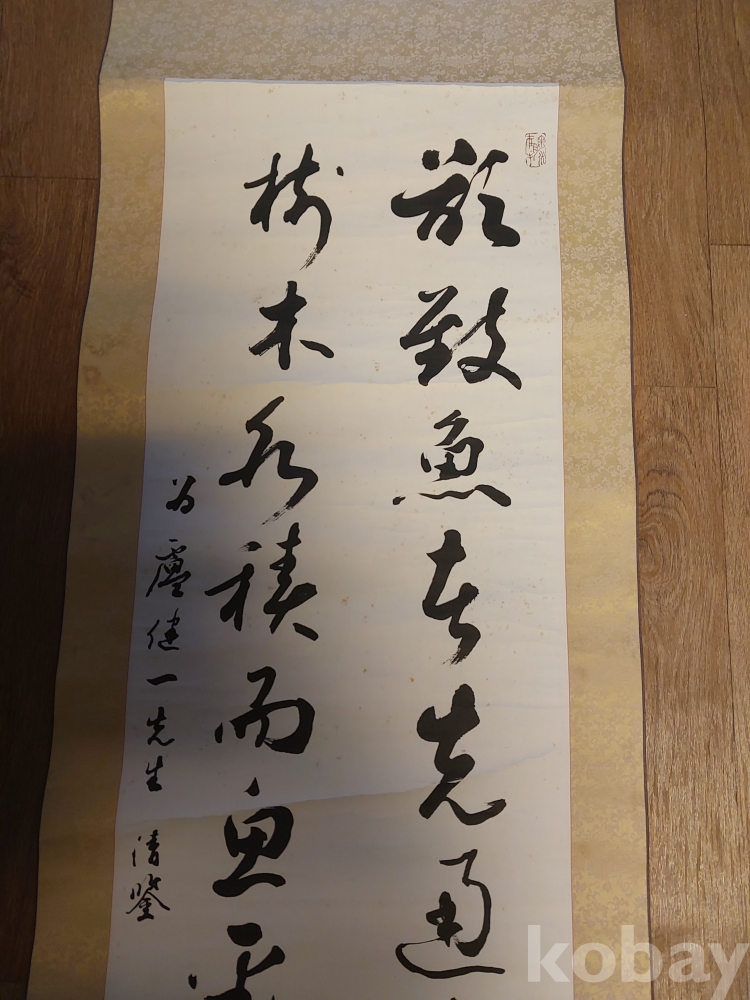 欲致魚者先通
樹木水積而魚
為盧健一先生 清鑒
kobay